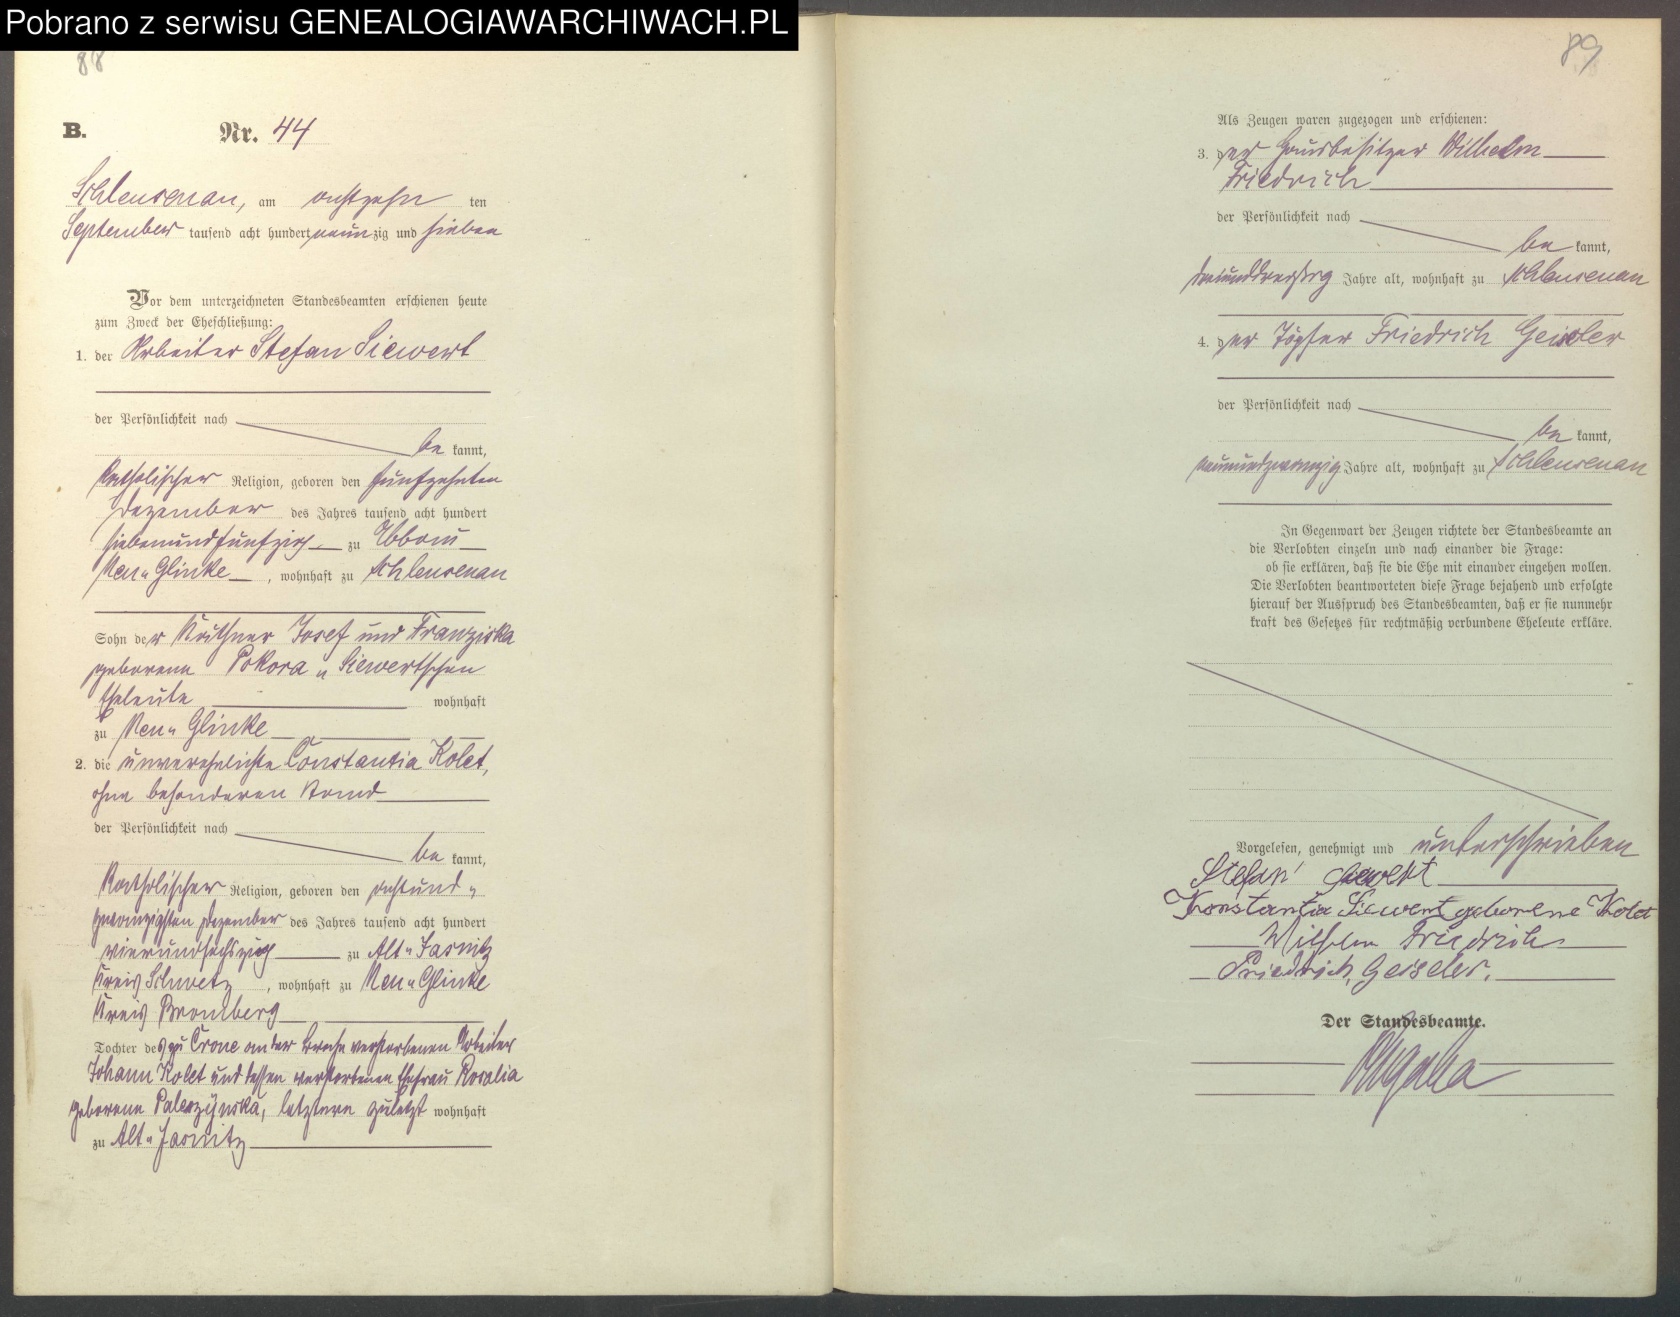 Pobrano z serwisu GENEALOGIAWARCHIWACH.PL
88
B. Nr. 44
Schleusenau, am achtzehn ten
September tausend acht hundert neunzig und sieben
Vor dem unterzeichneten Standesbeamten erschienen heute
zum Zweck der Eheschließung:
1. der Arbeiter Stefan Siewert
der Persönlichkeit nach
be kannt,
katholischer Religion, geboren den fünfzehnten
Dezember des Jahres tausend acht hundert
siebenundfünfzig zu Abbau
Neu-Glinke, wohnhaft zu Schleusenau
Sohn der Käthner Josef und Franziska
geborene Pokora-Siewertschen
Eheleute wohnhaft
zu Neu-Glinke
2. die unverehelichte Constantia Kolet,
ohne besonderen Stand
der Persönlichkeit nach
be kannt,
katholischer Religion, geboren den achtund-
zwanzigsten Dezember des Jahres tausend acht hundert
vierundsechszig zu Alt-Jasnitz
Kreis Schwetz, wohnhaft zu Neu-Glinke
Kreis Bromberg
Tochter des zu Crone an der Brahe verstorbenen Arbeiter
Johann Kolet und dessen verstorbenen Ehefrau Rosalia
geborene Paleszynska, letztere zuletzt wohnhaft
zu Alt-Jasnitz
89
Als Zeugen waren zugezogen und erschienen:
3. der Hausbesitzer Wilhelm
Friedrich
der Persönlichkeit nach
be kannt,
dreiunddreißig Jahre alt, wohnhaft zu Schleusenau
4. der Töpfer Friedrich Geisler
der Persönlichkeit nach
be kannt,
neunundzwanzig Jahre alt, wohnhaft zu Schleusenau
In Gegenwart der Zeugen richtete der Standesbeamte an
die Verlobten einzeln und nach einander die Frage:
ob sie erklären, daß sie die Ehe mit einander eingehen wollen.
Die Verlobten beantworteten diese Frage bejahend und erfolgte
hierauf der Ausspruch des Standesbeamten, daß er sie nunmehr
kraft des Gesetzes für rechtmäßig verbundene Eheleute erkläre.
Vorgelesen, genehmigt und unterschrieben
Stefan Siewert
Konstantia Siewert geborene Kolet
Wilhelm Friedrich
Friedrich Geiseler.
Der Standesbeamte.